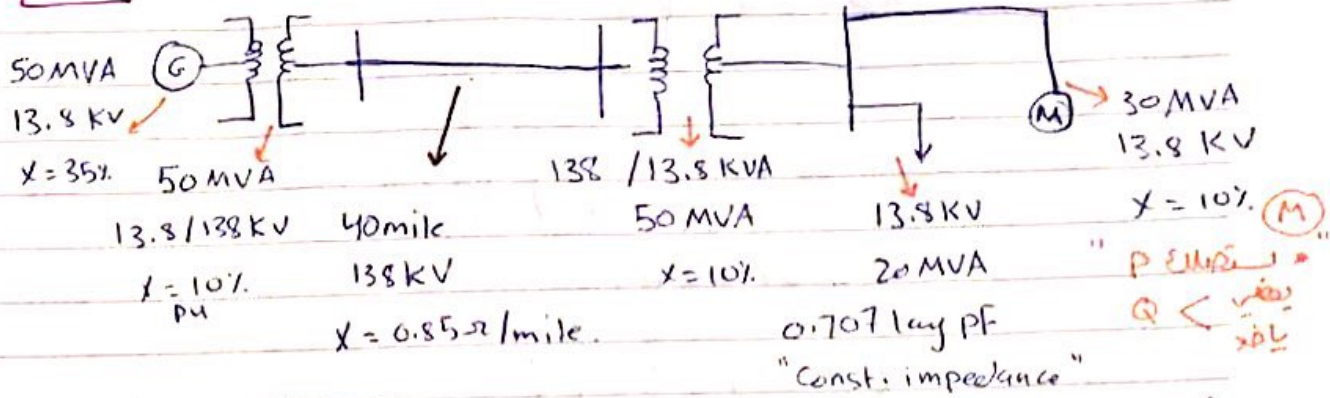 G
50 MVA
13.8 KV
X = 35%
50 MVA
13.8/138 KV
X = 10%
pu
40 mile
138 KV
X = 0.85 Ω/mile.
138 / 13.8 KVA
50 MVA
X = 10%
13.8 KV
20 MVA
0.707 lag PF
"Const. impedance"
M
30 MVA
13.8 KV
X = 10%
M
P
Q < يعطي
ياخد